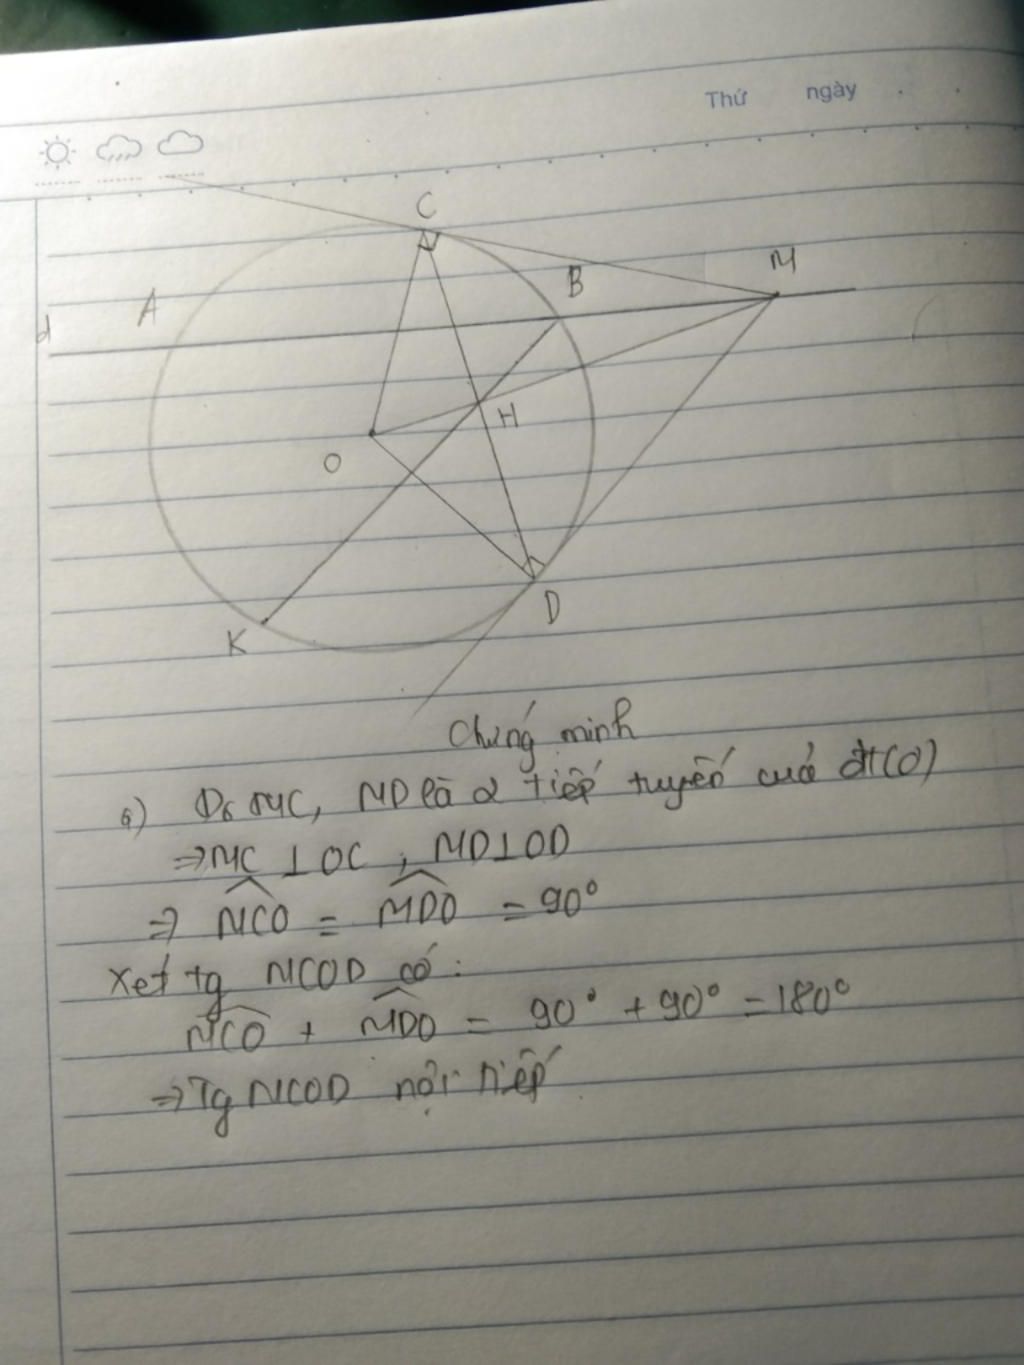 Thứ ngày
C
M
B
A
d
H
O
D
K
Chứng minh
a) Do MC, MD là 2 tiếp tuyến cuả đt(O)
⇒MC ⊥ OC , MD⊥OD
⇒ MCO = MDO = 90°
Xét tg MCOD có :
MCO + MDO = 90° + 90° = 180°
⇒Tg MCOD nội tiếp